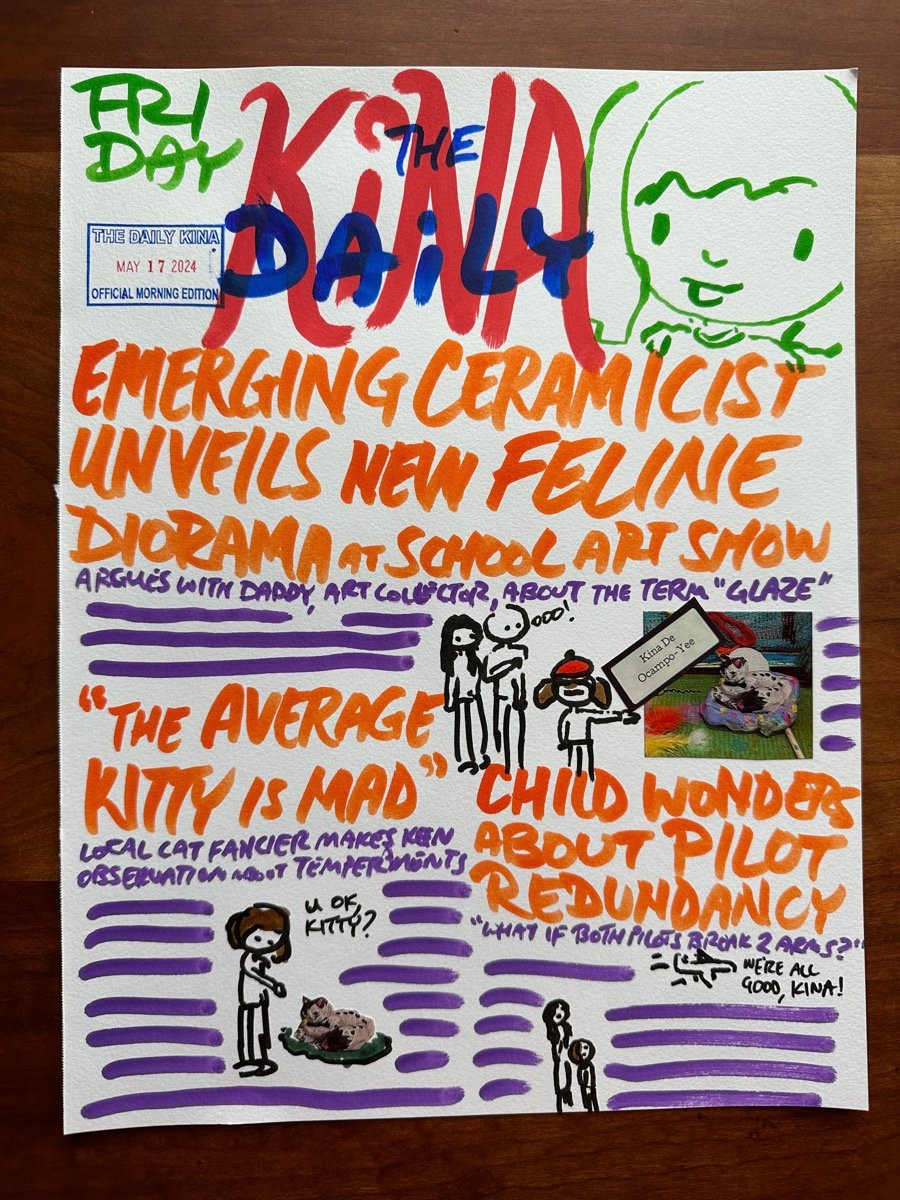 FRI
DAY
KiNA
THE
DAiLY
THE DAILY KINA
MAY 17 2024
OFFICIAL MORNING EDITION
EMERGING CERAMICIST
UNVEILS NEW FELINE
DIORAMA AT SCHOOL ART SHOW
ARGUES WITH DADDY, ART COLLECTOR, ABOUT THE TERM "GLAZE"
OOO!
Kina De
Ocampo-Yee
"THE AVERAGE
KITTY IS MAD"
LOCAL CAT FANCIER MAKES KEEN
OBSERVATION ABOUT TEMPERMENTS
U OK,
KITTY?
CHILD WONDERS
ABOUT PILOT
REDUNDANCY
"WHAT IF BOTH PILOTS BREAK 2 ARMS?"
WE'RE ALL
GOOD, KINA!